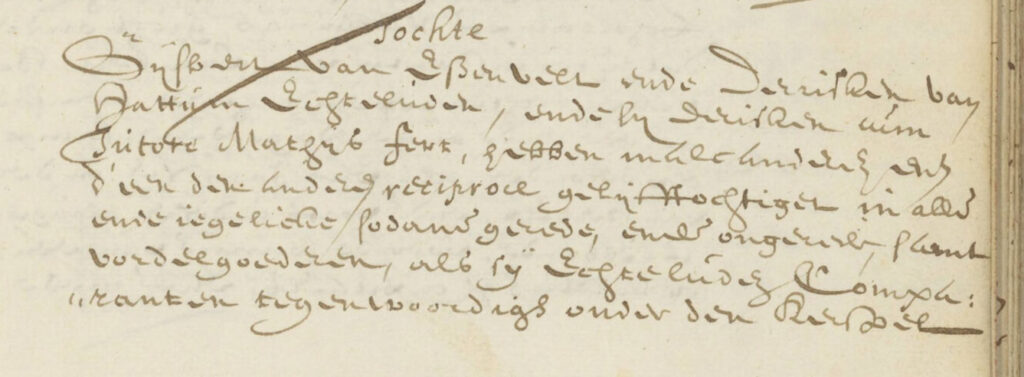 Tochte
Sijbert van Essenvelt ende Derrisken van
Hattum Echtelüden, ende sij Derisken cum
Tütore Mathijs fert, hebben malcanderen, end
d'een den anderen reciprocè gelijfftochtiget in alle
ende iegelicke sodane gerede, ende ongerede, samt
vordelgoederen, als sij Echtelüden Compa:
"ranten tegenwoordigh onder den Kerspel